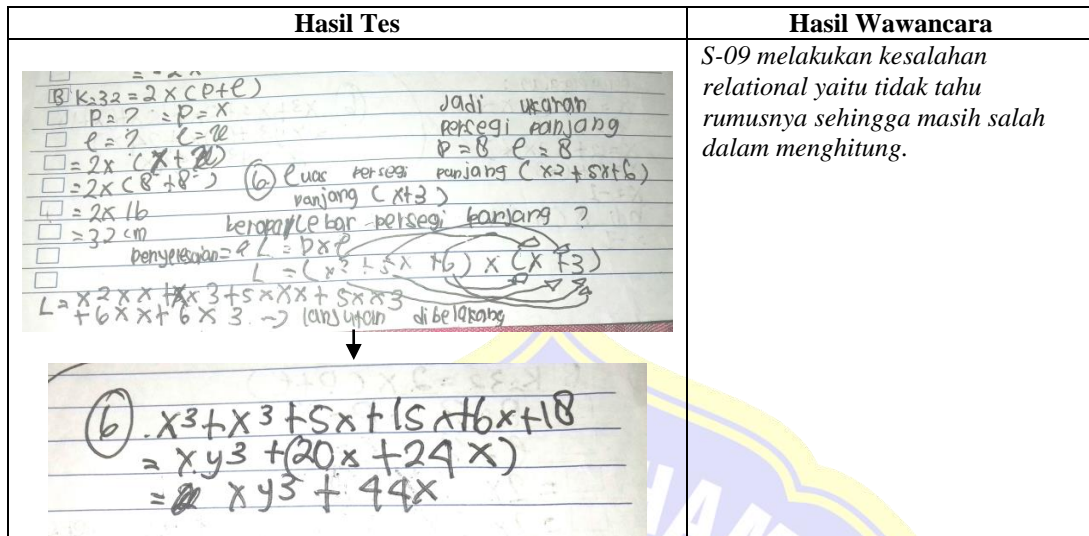 Hasil Tes
Hasil Wawancara
B K=32 = 2 x (P+l)
P = ? = P = x
l = ? l = x
= 2x (x + x)
= 2x (8 + 8)
= 2x 16
= 32 cm
Jadi ukuran
persegi panjang
P = 8 l = 8
6 luas persegi panjang (x2 + 5x+6)
panjang (x+3)
berapa lebar persegi panjang ?
penyelesaian = L = p x l
L = (x² + 5x + 6) x (x + 3)
L = x2 x x + x 3 + 5 x x x + 5x x 3
+ 6 x x + 6 x 3 -> lanjutan dibelakang
6. x3+x3+5x+15x+6x+18
= xy3 + (20x + 24x)
= xy3 + 44x
S-09 melakukan kesalahan
relational yaitu tidak tahu
rumusnya sehingga masih salah
dalam menghitung.